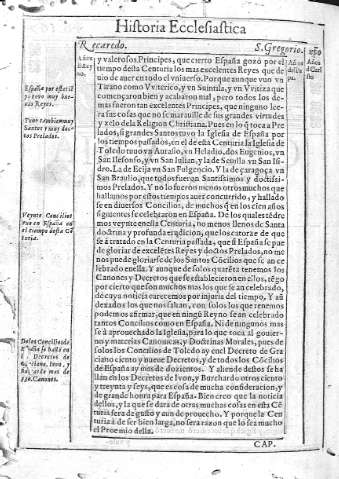 Historia Ecclesiastica
Recaredo. S. Gregorio.
y valerosos Principes, que cierto España gozó por el
tiempo desta Centuria los mas excelentes Reyes que de
uio de auer en todo el vniuerso. Porque aunque vuo vn
Tirano como Vviterico, y vn Suintila, y vn Vvitiza que
començaron bien y acabaron mal, pero todos los de
mas fueron tan excelentes Principes, que ninguno lee-
ra sus cosas que no se marauille de sus grandes virtudes
y zelo dela Religion Christiana. Pues en lo que toca a Pre
lados, si grandes Santos tuuo la Iglesia de España por
los tiempos passados, en el de esta Centuria la Iglesia de
Toledo tuuo a Aurasio, vn Heladio, dos Eugenios, vn
San Ilefonso, y vn San Iulian, y la de Seuilla vn San Isi-
dro. La de Ecija vn San Fulgencio. Y la de çaragoça vn
San Braulio, que todos fueron Santissimos y doctissi-
mos Prelados. Y no lo fueron menos otros muchos que
hallamos por estos tiempos auer concurrido, y hallado
se en diuersos Concilios, de muchos que en los cien años
siguientes se celebraron en España. De los quales tēdre
mos veynte en esta Centuria, no menos llenos de Santa
doctrina y profunda erudicion, que los catorze de que
se à tratado en la Centuria passada, que si España se pue
de gloriar de excelētes Reyes y doctos Prelados, no me
nos puede gloriarse de los Santos Cōcilios que se an ce
lebrado en ella. Y aunque de solos quarēta tenemos los
Canones y Decretos que se establecieron en ellos, tēgo
por cierto que son muchos mas los que se an celebrado,
de cuya noticia carecemos por injuria del tiempo. Y añ
dexados los que nos faltan, con solos los que tenemos
podemos afirmar, que en ningū Reyno se an celebrado
tantos Concilios como en España. Ni de ningunos mas
se à aprouechado la Iglesia, para lo que toca al gouier-
no y materias Canonicas, y Doctrinas Morales, pues de
solos los Concilios de Toledo ay en el Decreto de Gra
ciano ciento y nueue Decretos, y de todos los Cōcilios
de España ay mas de dozientos. Y allende destos se ha
llam en los Decretos de Iuon, y Burchardo otros ciento
y treynta y seys, que es cosa de mucha consideracion, y
de grande honra para España. Bien creo que la noticia
dellos, y la que se dara de otras muchas cosas en esta Cē
turia sera de gusto y aun de prouecho. Y porque la Cen
turia à de ser bien larga, no sera razon que lo sea mucho
el Proemio della.
CAP.
España por este tiē
po tuuo muy bue-
nos Reyes.
Tuuo tambien muy
Santos y muy doc-
tos Prelados.
Veynte Concilios
vuo en España en
el tiempo desta Cē
turia.